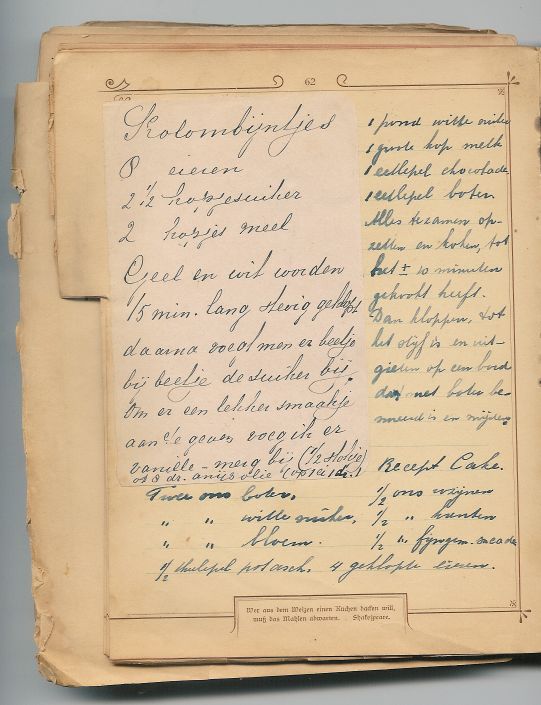 62
Kolombijntjes
8 eieren
2 1/2 kopje suiker
2 kopjes meel
Geel en wit worden
15 min. lang stevig geklopt
daarna voegt men er beetje
bij beetje de suiker bij.
Om er een lekker smaakje
aan te geven voeg ik er
vanille-merg bij (1/2 stokje)
of 8 dr. anijs olie (op 1 ei 1 dr.)
1 pond witte suiker
1 groote kop melk
1 eetlepel chocolade
1 eetlepel boter
Alles tezamen op-
zetten en koken, tot
het ± 10 minuten
gekookt heeft.
Dan kloppen, tot
het stijf is en uit-
gieten op een bord
dat met boter be-
smeerd is en snijden.
Recept Cake.
Twee ons boter, 1/2 ons rozijnen
" " witte suiker, 1/2 " krenten
" " bloem. 1/2 " fijngesn. sucade
1/2 theelepel potasch. 4 geklopte eieren.
Wer aus dem Weizen einen Kuchen backen will,
muß das Mahlen abwarten. Shakespeare.